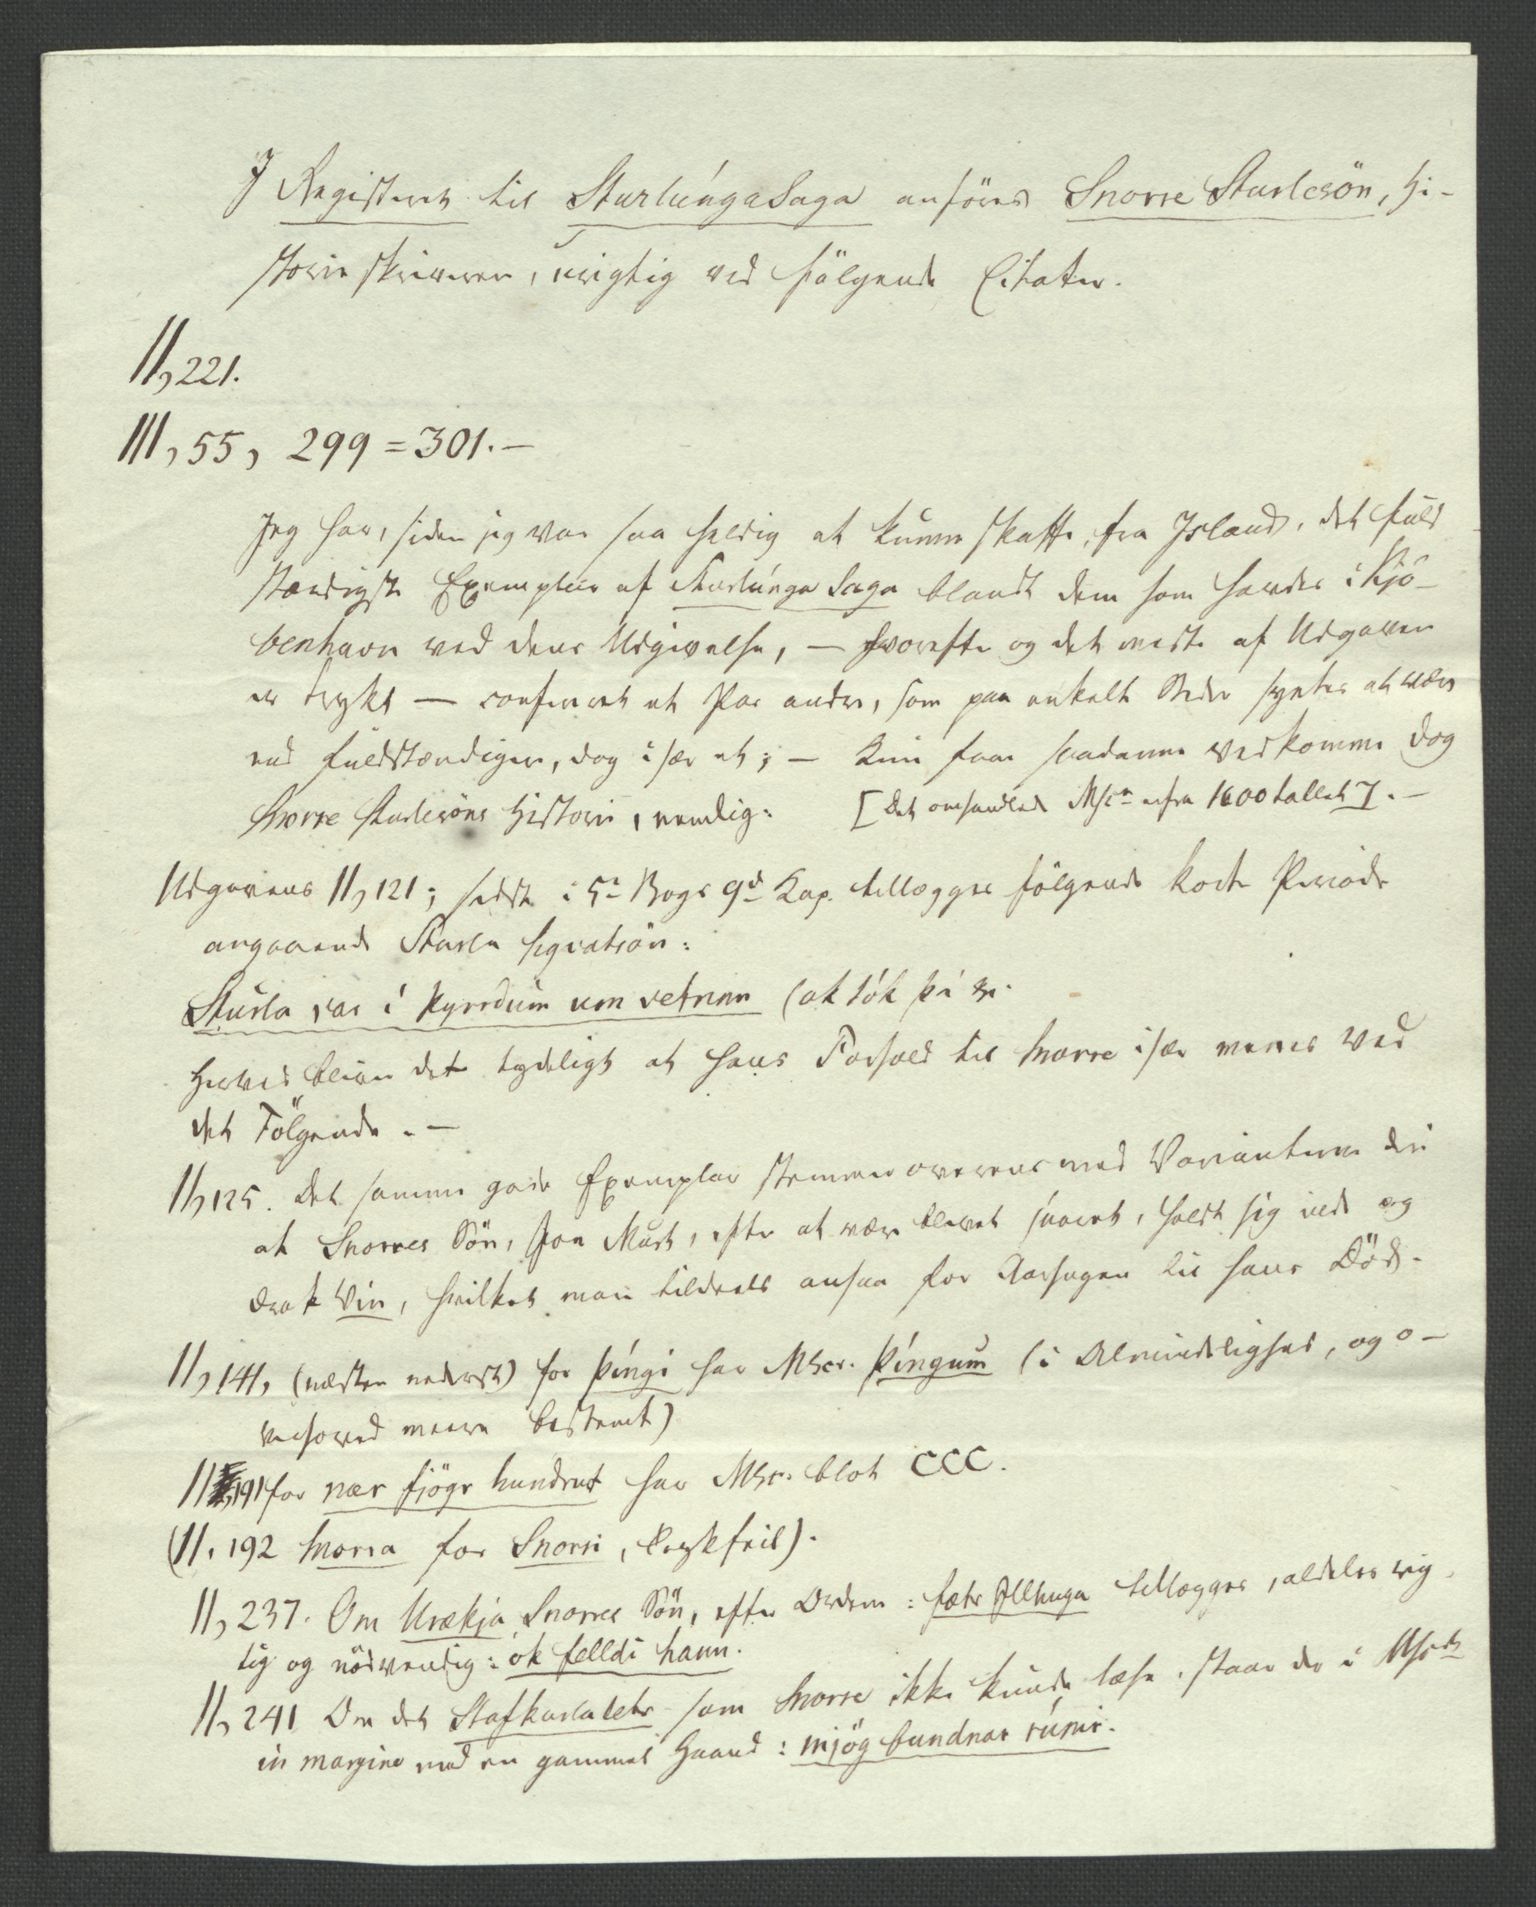 I Registeret til SturlúngaSaga anföres Snorre Sturlesön, Hi-
storieskriveren, urigtig ved fölgende Citater.
II, 221.
III, 55, 299=301.-
Jeg har, siden jeg var saa heldig at kunne skaffe, fra Island, det fuld
stændigste Exemplar af Sturlúnga Saga blandt dem som havdes i Kjö-
benhavn ved dens Udgivelse, — hvorefter og det meste af Udgaven
er trykt — confereret et Par andre, som paa enkelte Steder syntes at være
end fuldstændigere, dog især et; — Kun faae saadanne vedkomme dog
Snorre Sturlesöns Historie, nemlig: [Det omhandlede Mscr er fra 1600tallet].-
Udgavens II, 121; sidst i 5te Bogs 9de Kap. tillægges fölgende korte Periode
angaaende Sturla Sigvatsön:
Sturla var i kyrrdum um vetrinn (ok tók þá &c.
Herved bliver det tydeligt at hans Forhold til Snorre især menes ved
det Fölgende.-
II, 125. Det samme gode Exemplar stemmer overens med Varianterne deri
at Snorres Sön, Jon Murt, efter at være blevet saaret, holdt sig ilde og
drak Vin, hvilket man tildeels ansaae for Aarsagen til hans Död.
II, 141, (næsten nederst) for þíngi har Mscr. þíngum (i Almindelighed, og o-
verhoved meere bestemt)
II, 191 for nær fjögr hundrut har Mscr. blot CCC.
(II, 192 Snorra for Snorri, Trykfeil).
II, 237. Om Urækja Snorres Sön, efter Ordene: fætr Illhuga tillægges, aldeles rig-
tig og nödvendig: ok felldi hann.
II, 241 Om det Stafkarlaletr som Snorre ikke kunde læse, staar der i Mscr
in margine med en gammel Haand: mjög bundnar rúnir.